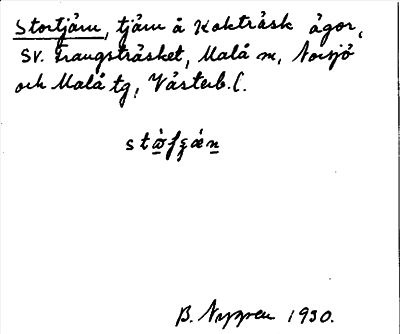 Stortjärn, tjärn å Kokträsk ägor,
SV. Fraugsträsket, Malå m, Norsjö
och Malå tg, Västerb. l.
B. Nyppen 1930.